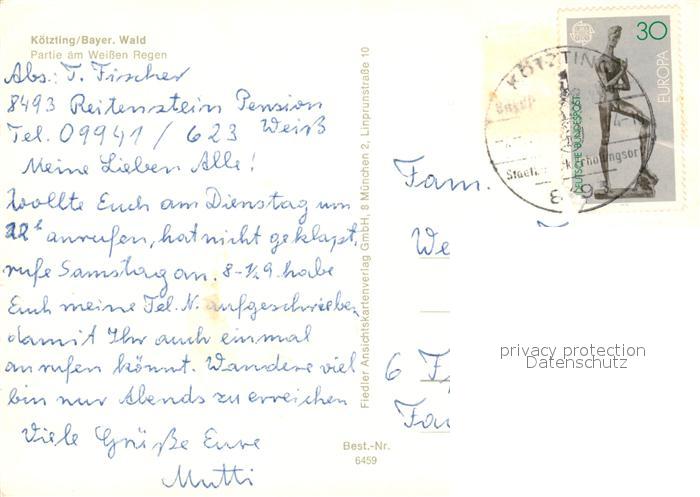 Kötzting/Bayer. Wald
Partie am Weißen Regen
Abs.: T. Fischer
8493 Reitenstein Pension
Tel. 09941 / 623 Weiß
Meine Lieben Alle!
Wollte Euch am Dienstag um
22h anrufen, hat nicht geklapt,
rufe Samstag an. 8-½9 habe
Euch meine Tel. N. aufgeschrieben
damit Ihr auch einmal
anrufen könnt. Wandere viel
bin nur Abends zu erreichen
Viele Grüße Eure
Mutti
Fiedler Ansichtskartenverlag GmbH, 8 München 2, Linprunstraße 10
Best.-Nr.
6459
30
EUROPA
DEUTSCHE BUNDESPOST
KÖTZTING
849
Fam.
We
6 F
Fau
privacy protection
Datenschutz